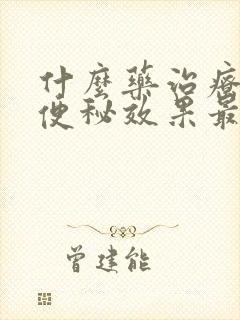 什麼藥治療
便秘效果最
曾建能